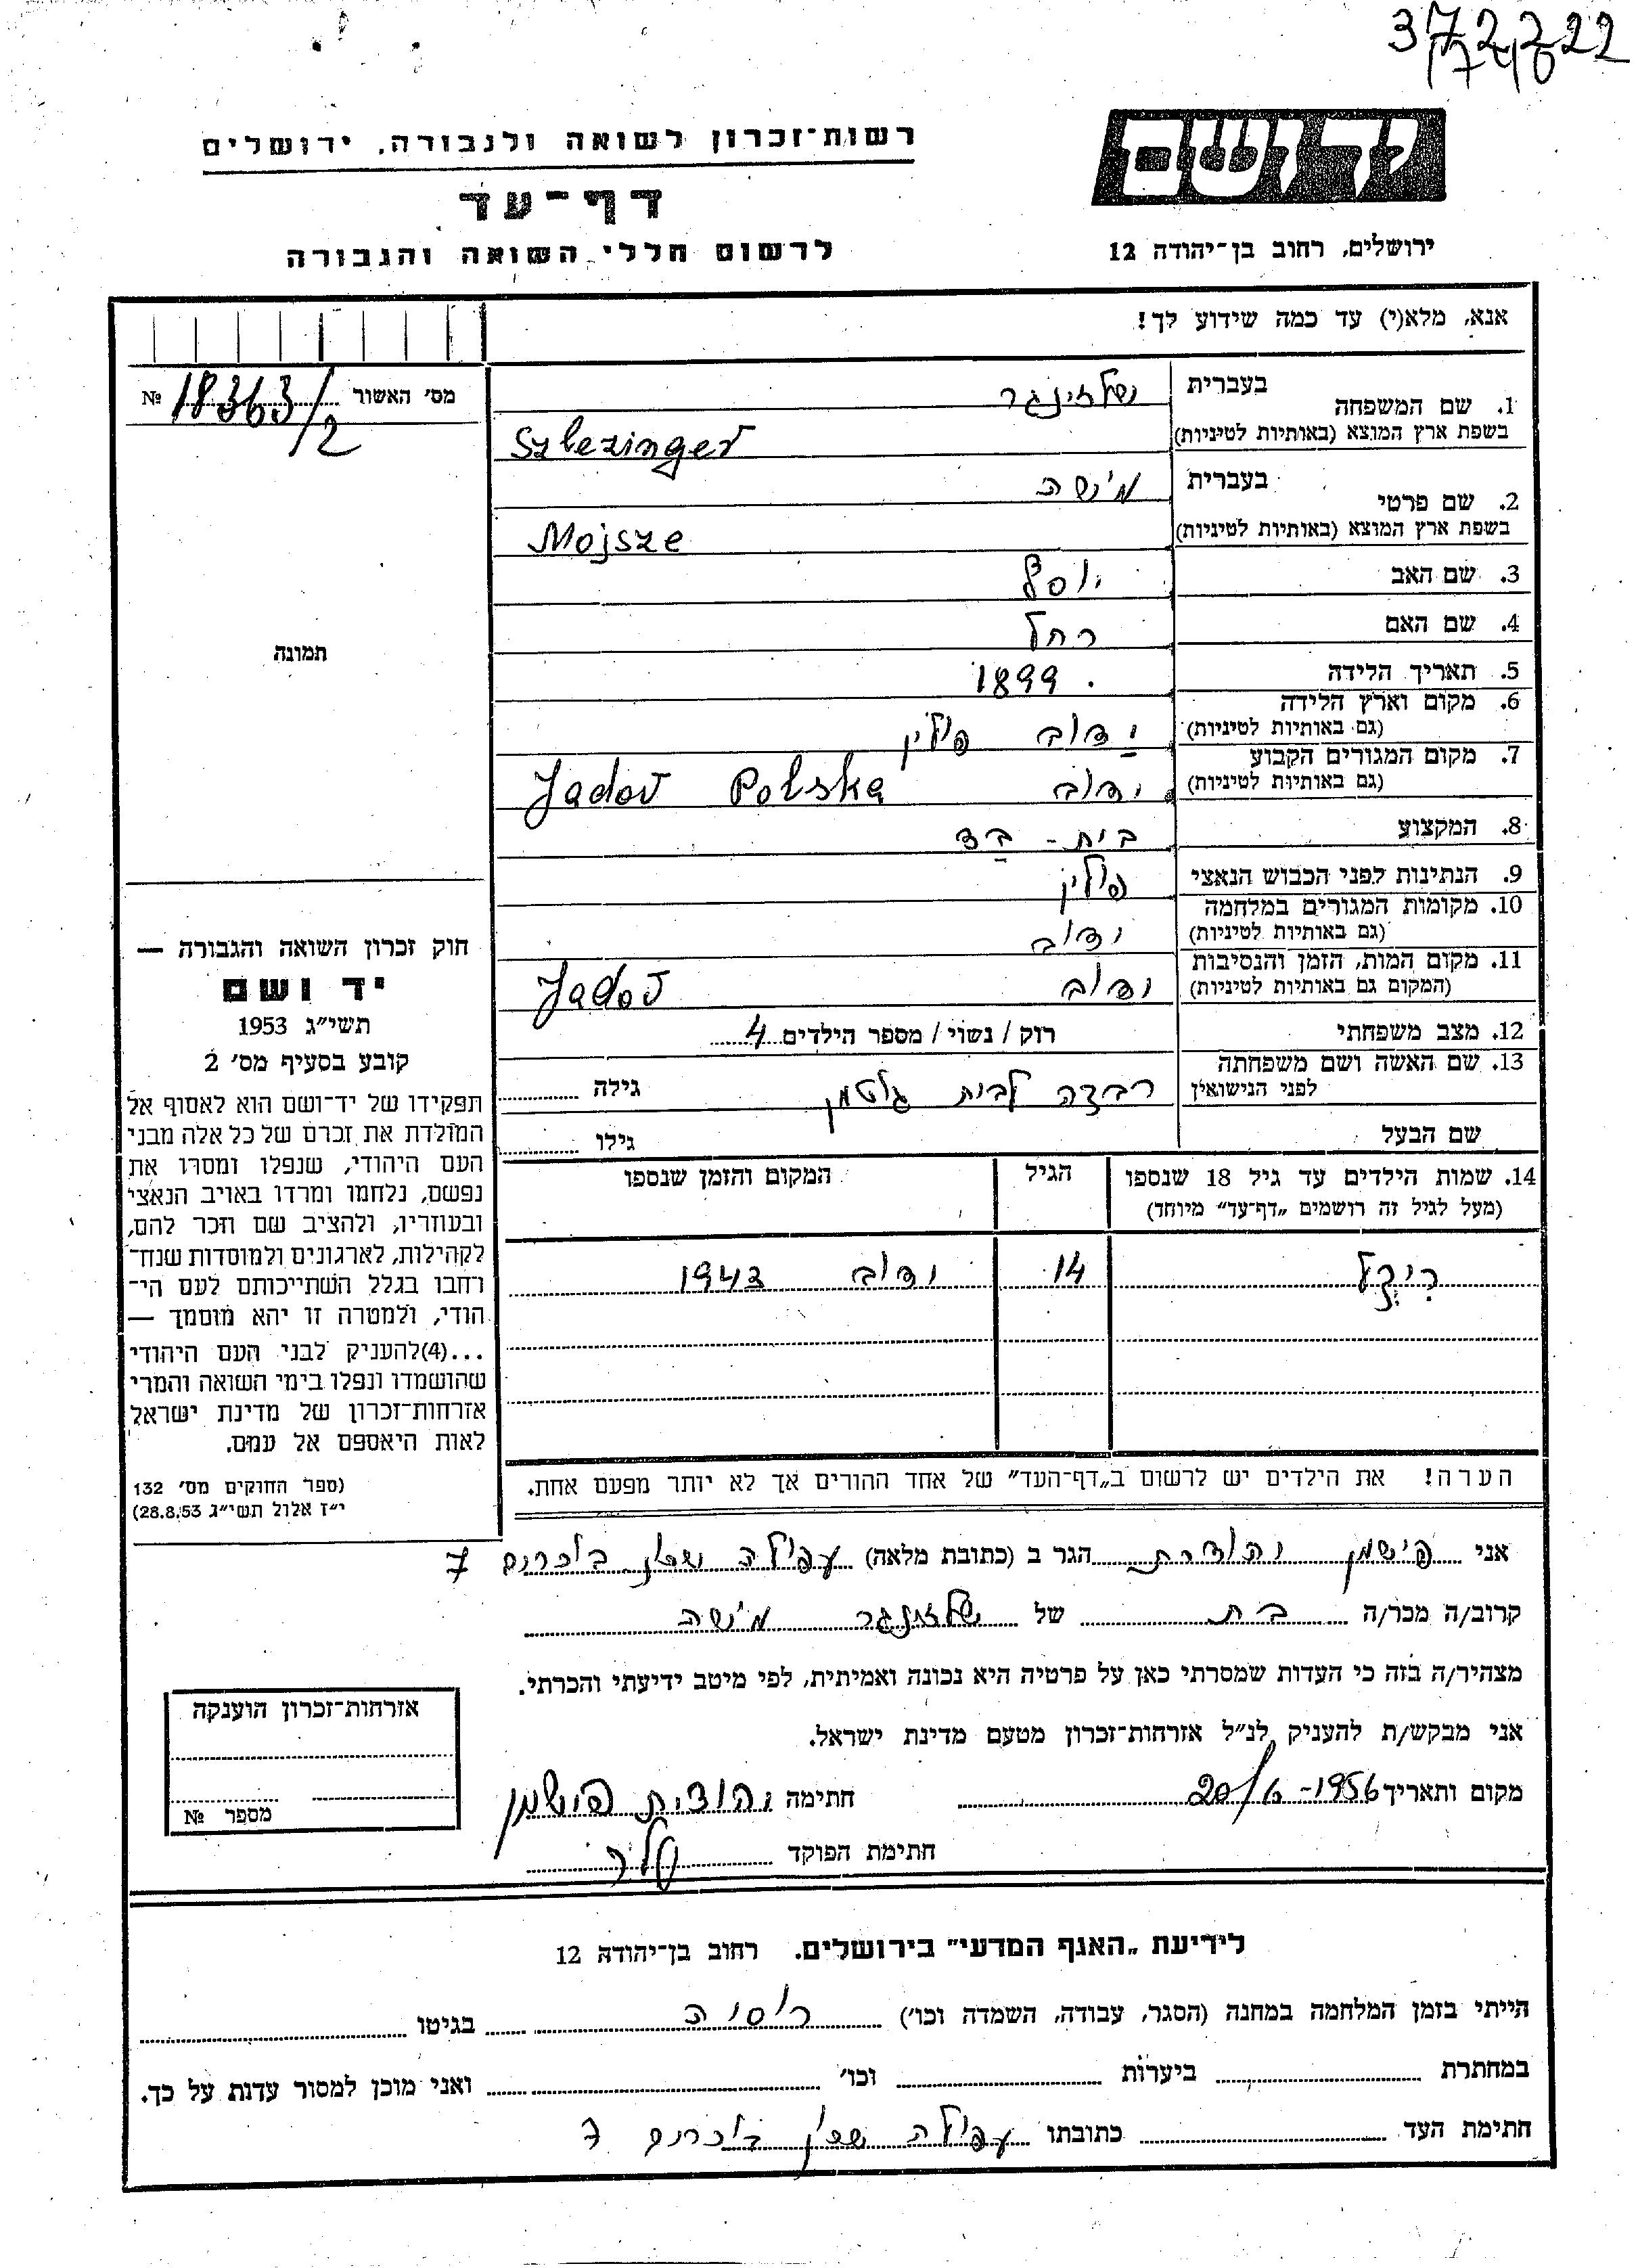 372222
17410
רשות־זכרון לשואה ולגבורה, ירושלים
דף־עד
לרשום חללי השואה והגבורה
יד ושם
ירושלים, רחוב בן־יהודה 12
אנא, מלא(י) עד כמה שידוע לך!
מס׳ האשור № 18363/2
תמונה
1. שם המשפחה בעברית שלזינגר
בשפת ארץ המוצא (באותיות לטיניות) Szlezinger
2. שם פרטי בעברית מוישה
בשפת ארץ המוצא (באותיות לטיניות) Mojsze
3. שם האב יוסף
4. שם האם רחל
5. תאריך הלידה 1899
6. מקום וארץ הלידה ידוב פולין
(גם באותיות לטיניות)
7. מקום המגורים הקבוע ידוב Jadov Polska
(גם באותיות לטיניות)
8. המקצוע בית - בד
9. הנתינות לפני הכבוש הנאצי פולין
10. מקומות המגורים במלחמה ידוב
(גם באותיות לטיניות)
11. מקום המות, הזמן והנסיבות ידוב Jadov
(המקום גם באותיות לטיניות)
12. מצב משפחתי רוק / נשוי / מספר הילדים 4
13. שם האשה ושם משפחתה
לפני הנישואין לבית גלטמן גילה
שם הבעל גילו
14. שמות הילדים עד גיל 18 שנספו הגיל המקום והזמן שנספו
(מעל לגיל זה רושמים „דף־עד״ מיוחד)
14 ידוב 1943
חוק זכרון השואה והגבורה —
יד ושם
תשי״ג 1953
קובע בסעיף מס׳ 2
תפקידו של יד־ושם הוא לאסוף אל
המולדת את זכרם של כל אלה מבני
העם היהודי, שנפלו ומסרו את
נפשם, נלחמו ומרדו באויב הנאצי
ובעוזריו, ולהציב שם וזכר להם,
לקהילות, לארגונים ולמוסדות שנח־
רחבו בגלל השתייכותם לעם הי־
הודי, ולמטרה זו יהא מוסמך —
...(4)להעניק לבני העם היהודי
שהושמדו ונפלו בימי השואה והמרי
אזרחות־זכרון של מדינת ישראל
לאות היאספם אל עמם.
(ספר החוקים מס׳ 132
י״ז אלול תשי״ג 28.8.53)
הערה! את הילדים יש לרשום ב„דף־העד״ של אחד ההורים אך לא יותר מפעם אחת.
אני פישמן יהודית הגר ב (כתובת מלאה) עפולה שכון 7
קרוב/ה מכר/ה בת של שלזינגר מוישה
מצהיר/ה בזה כי העדות שמסרתי כאן על פרטיה היא נכונה ואמיתית, לפי מיטב ידיעתי והכרתי.
אני מבקש/ת להעניק לנ״ל אזרחות־זכרון מטעם מדינת ישראל.
מקום ותאריך 20/6-1956 חתימה יהודית פישמן
חתימת הפוקד
אזרחות־זכרון הוענקה
מספר №
לידיעת „האגף המדעי״ בירושלים. רחוב בן־יהודה 12
הייתי בזמן המלחמה במחנה (הסגר, עבודה, השמדה וכו׳) רוסיה בגיטו
במחתרת ביערות וכו׳ ואני מוכן למסור עדות על כך.
חתימת העד כתובתו עפולה שכון 7